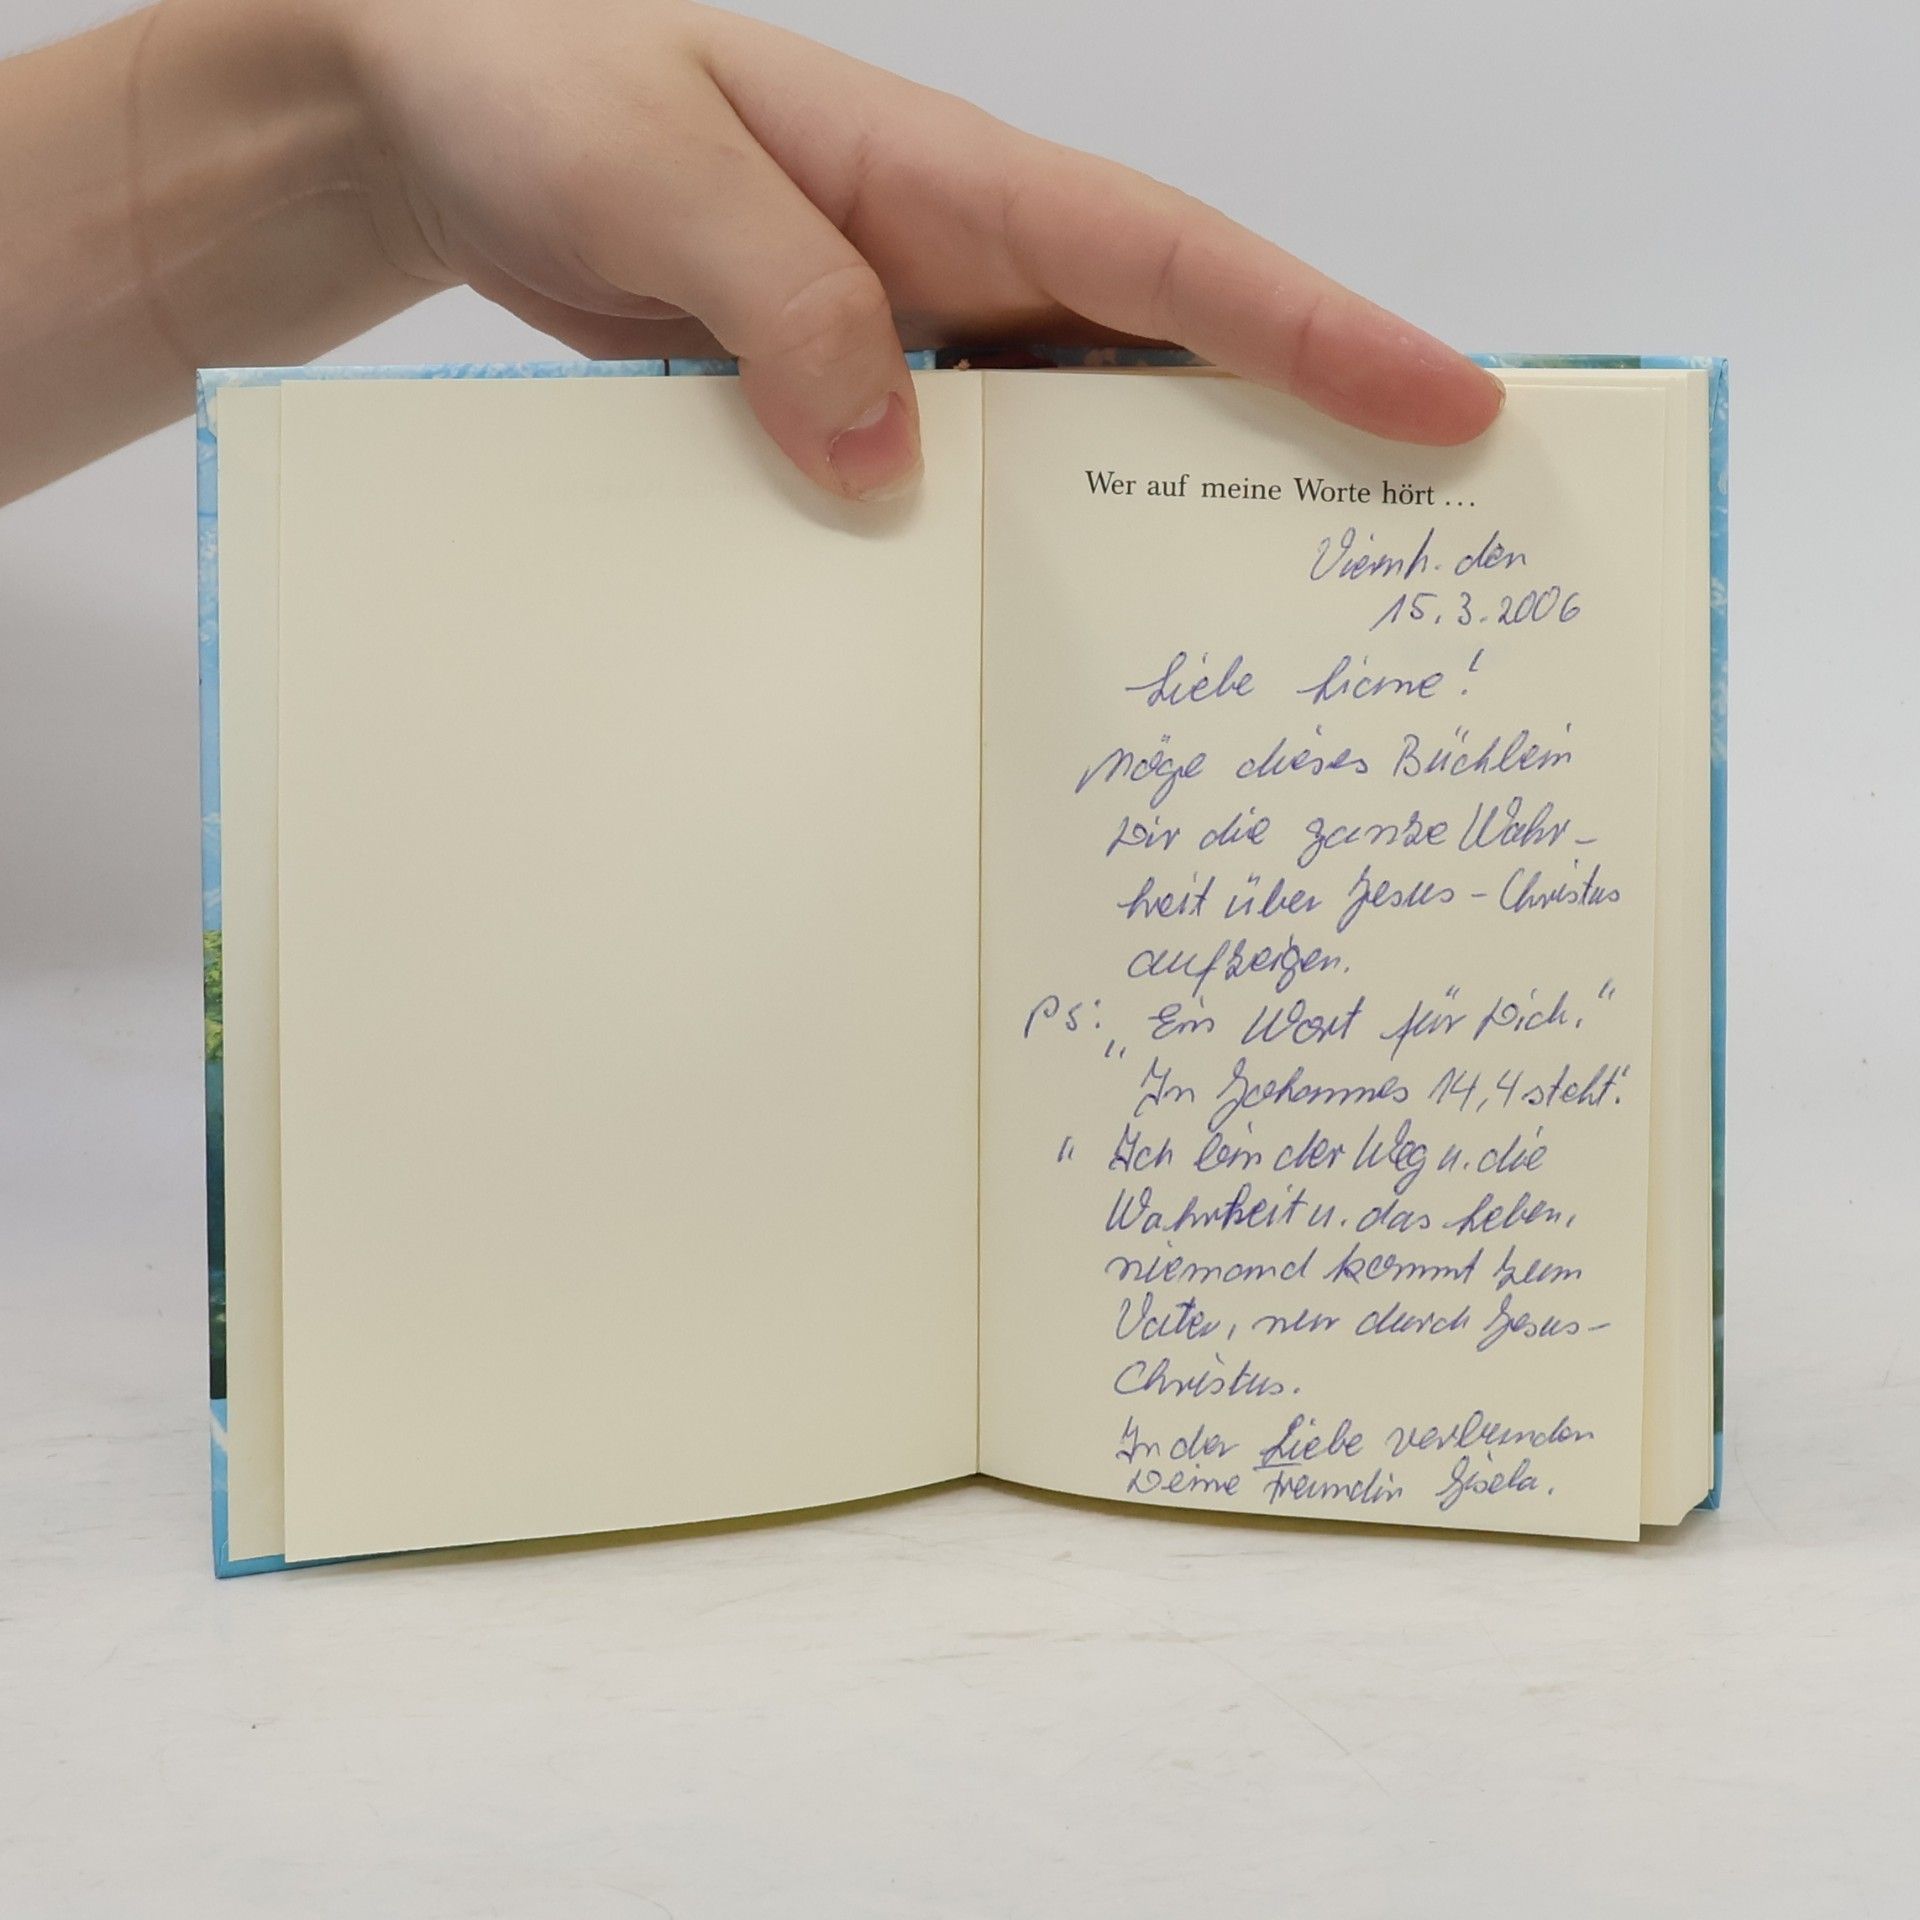 Wer auf meine Worte hört ...
Viernh. den
15.3.2006
Liebe Liane!
Möge dieses Büchlein
Dir die ganze Wahr-
heit über Jesus-Christus
aufzeigen.
PS: „Ein Wort für Dich."
In Johannes 14,4 steht:
" Ich bin der Weg u. die
Wahrheit u. das Leben,
niemand kommt zum
Vater, nur durch Jesus-
Christus.
In der Liebe verbunden
Deine Freundin Gisela.